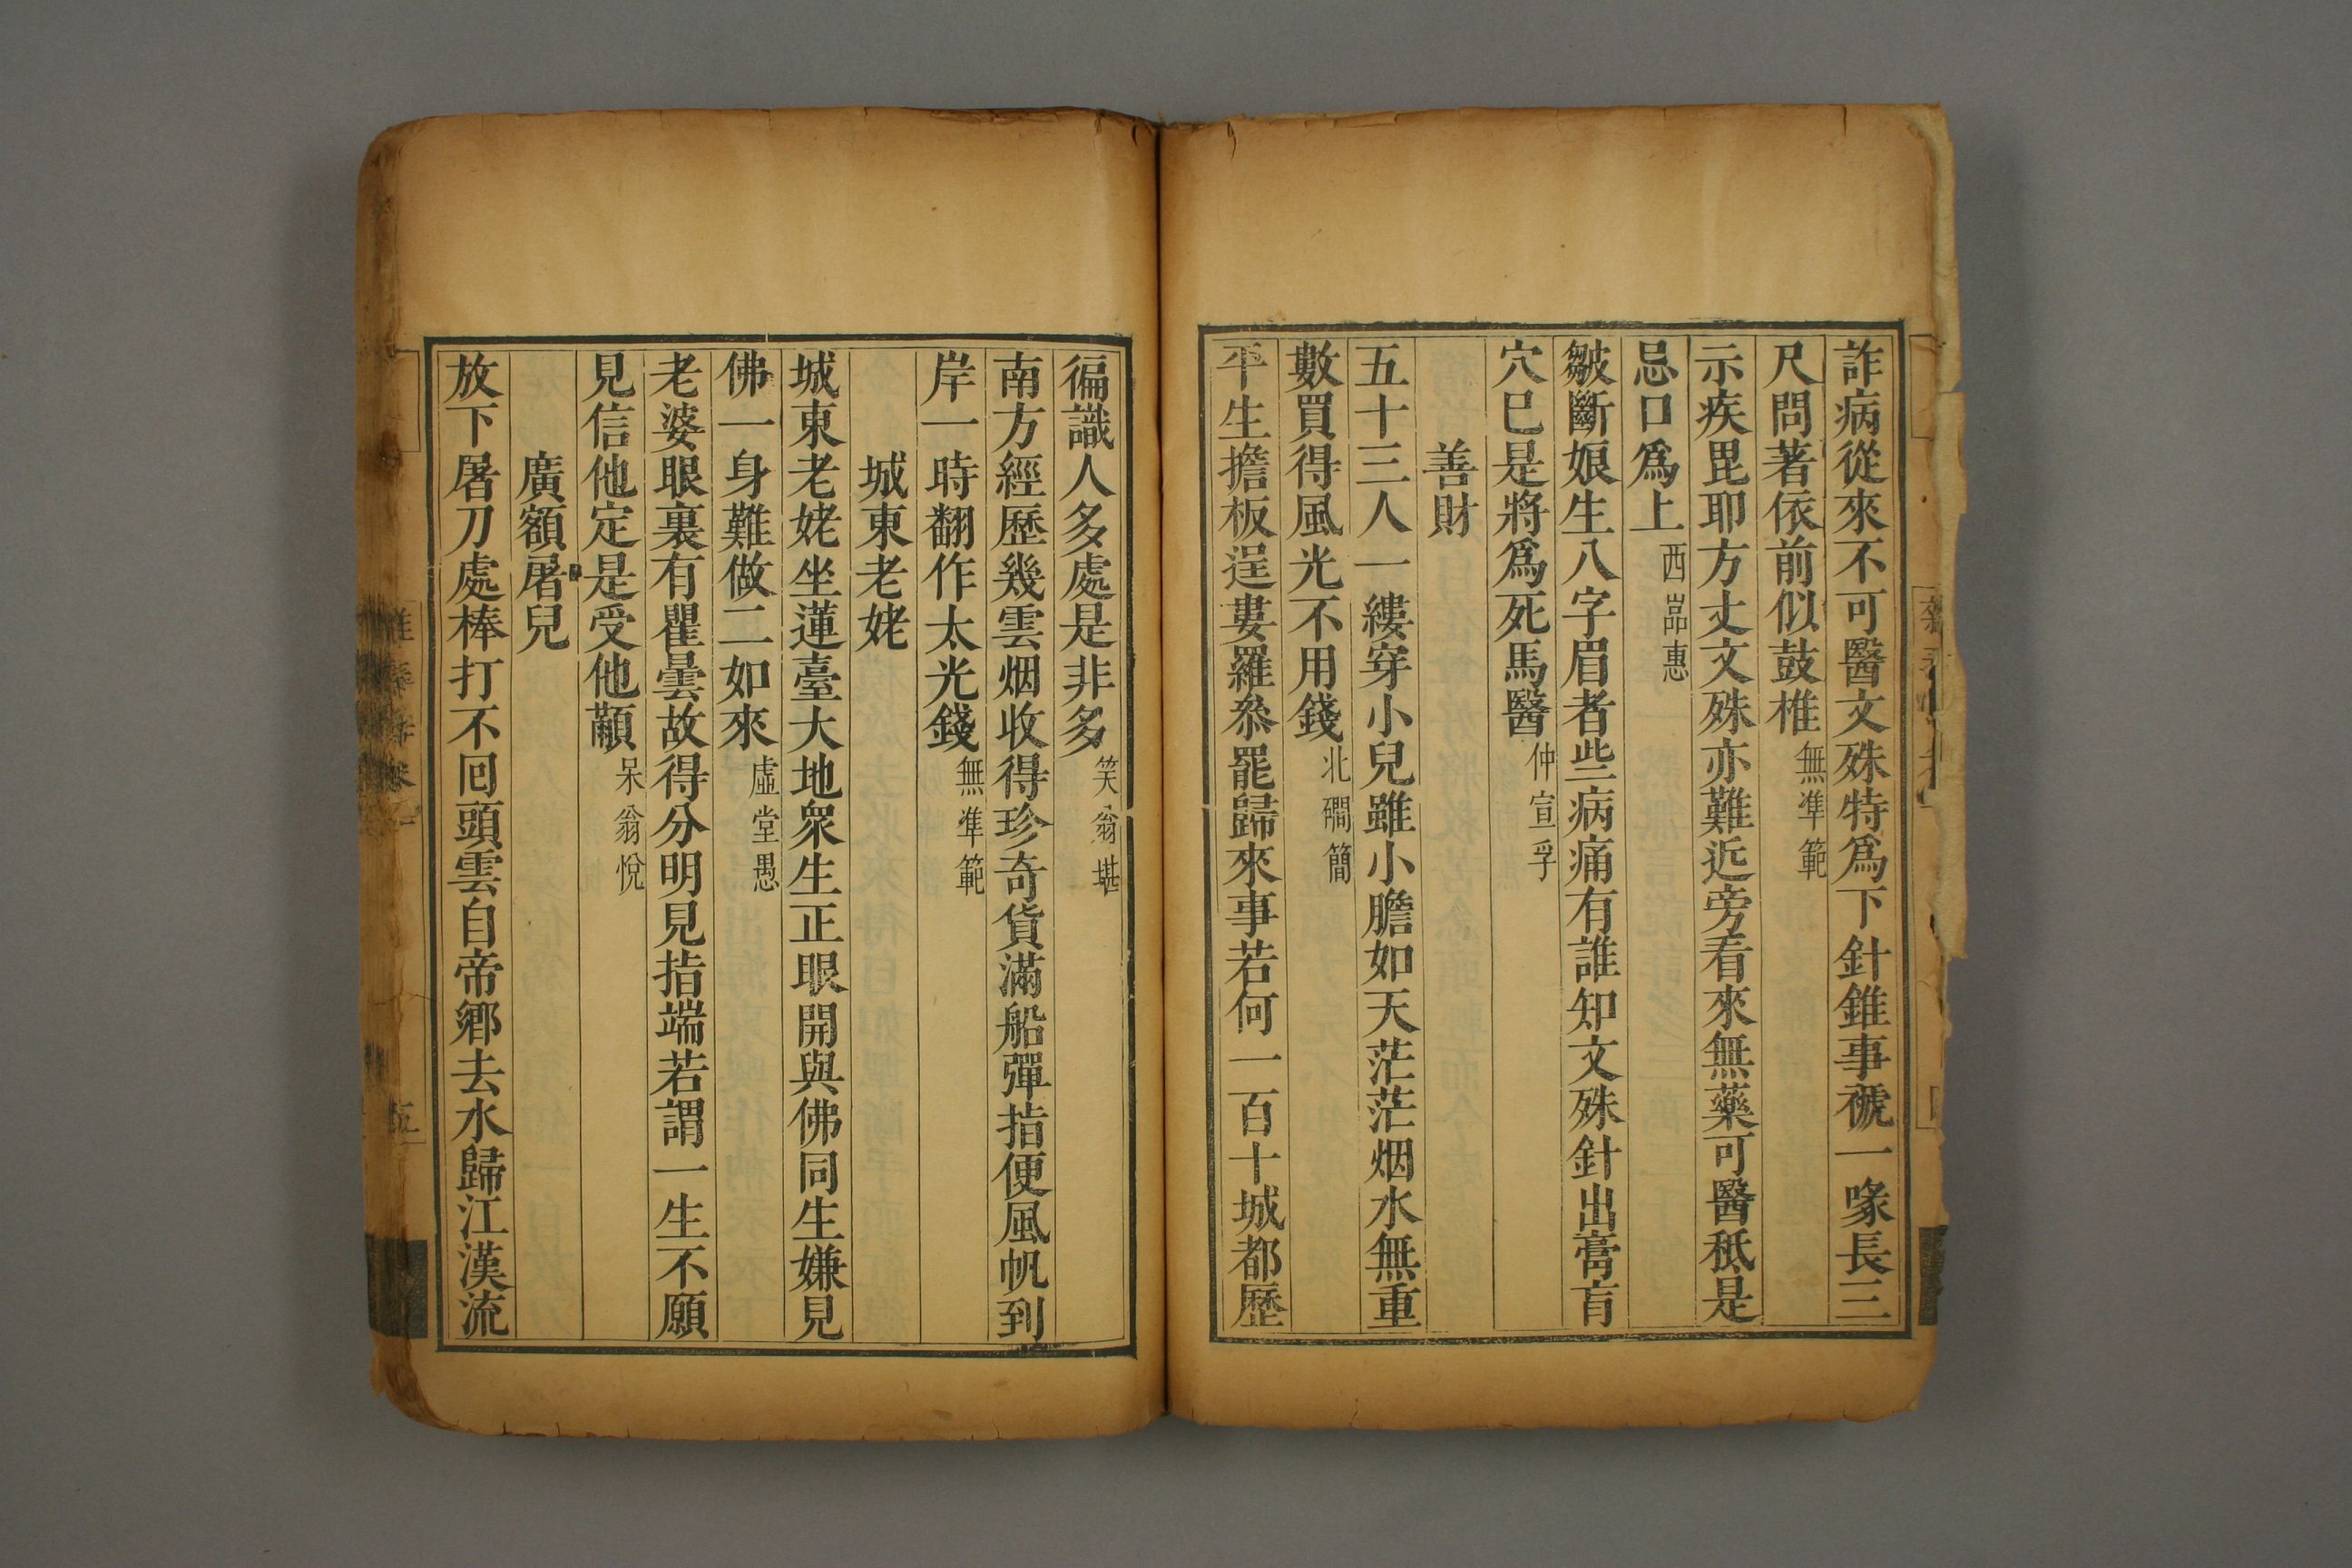 詐病從來不可醫文殊特爲下針錐事褫一喙長三
尺問著依前似鼓椎無準範
示疾毘耶方丈文殊亦難近旁看來無藥可醫秪是
忌口爲上西嵓惠
皺斷娘生八字眉者些病痛有誰知文殊針出膏肓
穴已是將爲死馬醫仲宣孚
善財
五十三人一縷穿小兒雖小膽如天茫茫烟水無重
數買得風光不用錢北磵簡
平生擔板逞婁羅叅罷歸來事若何一百十城都歷
徧識人多處是非多笑翁堪
南方經歷幾雲烟收得珍奇貨滿船彈指便風帆到
岸一時翻作太光錢無準範
城東老姥
城東老姥坐蓮臺大地衆生正眼開與佛同生嫌見
佛一身難做二如來虛堂愚
老婆眼裏有瞿曇故得分明見指端若謂一生不願
見信他定是受他顢呆翁悅
廣額屠兒
放下屠刀處棒打不囘頭雲自帝鄉去水歸江漢流
五